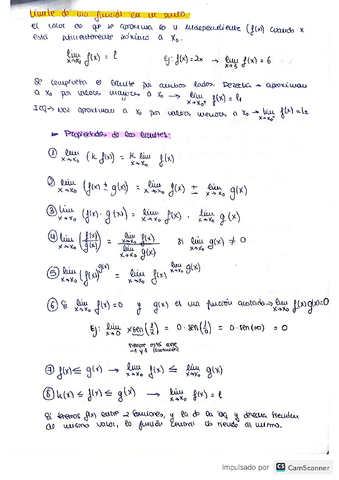 Límite de una función en un punto
El valor al que se aproxima la v. independiente (f(x)) cuando x
está suficientemente próximo a x₀.
lim x→x₀ f(x) = l Ej: f(x)=2x → lim x→3 f(x) = 6
Se comprueba el límite por ambos lados. Derecha → aproximan
a x₀ por valores mayores a x₀ → lim x→x₀⁺ f(x) = l₁
IZQ → Nos aproximan a x₀ por valores menores a x₀ → lim x→x₀⁻ f(x) = l₂
► Propiedades de los límites:
① lim x→x₀ (k f(x)) = k lim x→x₀ f(x)
② lim x→x₀ (f(x) ± g(x)) = lim x→x₀ f(x) ± lim x→x₀ g(x)
③ lim x→x₀ (f(x) · g(x)) = lim x→x₀ f(x) · lim x→x₀ g(x)
④ lim x→x₀ (f(x)/g(x)) = lim x→x₀ f(x) / lim x→x₀ g(x) si lim x→x₀ g(x) ≠ 0
⑤ lim x→x₀ (f(x)^g(x)) = lim x→x₀ f(x)^lim x→x₀ g(x)
⑥ Si lim x→x₀ f(x) = 0 y g(x) es una función acotada → lim x→x₀ f(x)g(x)=0
Ej: lim x→0 x sen(1/x) = 0 · sen(1/0) = 0 · sen(∞) = 0
-1 y 1
⑦ f(x) ≤ g(x) → lim x→x₀ f(x) ≤ lim x→x₀ g(x)
⑧ h(x) ≤ f(x) ≤ g(x) → lim x→x₀ f(x) = l
Si tenemos f(x) entre 2 funciones, y la de la izq y derecha tienden
al mismo valor, la función central tiende al mismo.
Impulsado por CS CamScanner